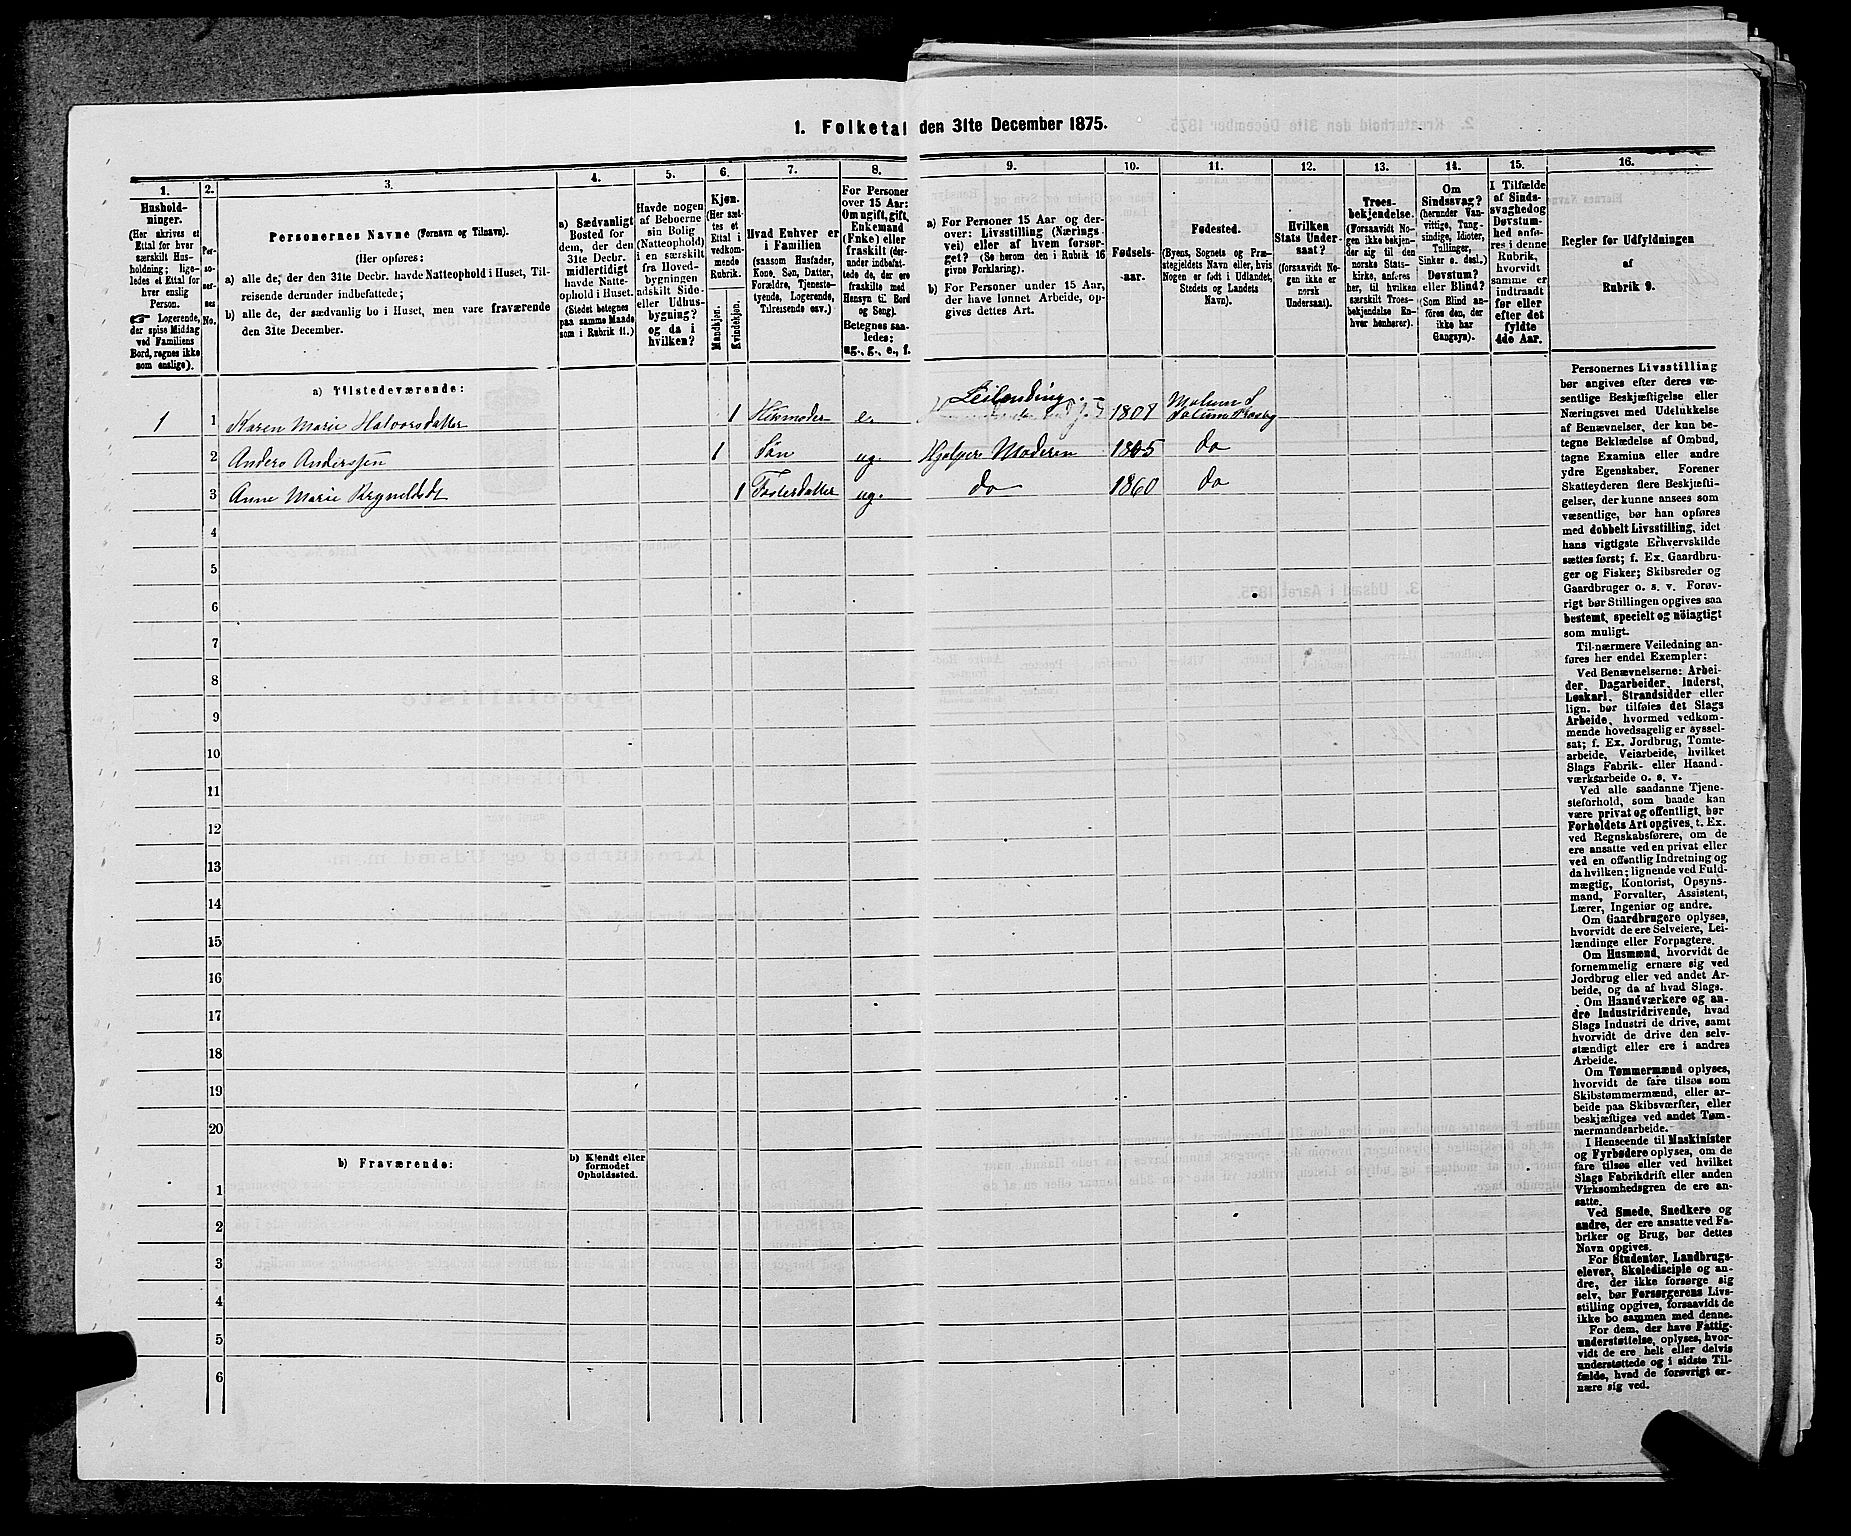 1. Folketal den 31te December 1875.
1.
2.
3.
4.
5.
6.
7.
8.
9.
10.
11.
12.
13.
14.
15.
16.
Hushold-
ninger.
(Her skrives et
Ettal for hver
særskilt Hus-
holdning; lige-
ledes et Ettal for
hver enslig
Person.
☞ Logerende,
der spise Middag
ved Familiens
Bord, regnes ikke
som enslige).
Per-
so-
ner-
nes
No.
Personernes Navne (Fornavn og Tilnavn).
(Her opføres:
a) alle de, der den 31te Decbr. havde Natteophold i Huset, Til-
reisende derunder indbefattede;
b) alle de, der sædvanlig bo i Huset, men vare fraværende
den 31te December.
a) Sædvanligt
Bosted for
dem, der den
31te Decbr.
midlertidigt
havde Natte-
ophold i Huset.
(Stedet betegnes
paa samme Maade
som i Rubrik 11.)
Havde nogen
af Beboerne
sin Bolig
(Natteophold)
i en særskilt
fra Hoved-
bygningen
adskilt Side-
eller Udhus-
bygning?
og da i
hvilken?
Kjøn.
(Her sæt-
tes et
Ettal i
vedkom-
mende
Rubrik.
Mandkjøn.
Kvindekjøn.
Hvad Enhver er
i Familien
(saasom Husfader,
Kone, Søn, Datter,
Forældre, Tjeneste-
tyende, Logerende,
Tilreisende osv.)
For Personer
over 15 Aar:
Om ugift, gift,
Enkemand
(Enke) eller
fraskilt (der-
under indbefat-
tede de, der ere
fraskilte med
Hensyn til Bord
og Seng).
Betegnes saa-
ledes:
ug., g., e., f.
a) For Personer 15 Aar og der-
over: Livsstilling (Nærings-
vei) eller af hvem forsør-
get? (Se herom den i Rubrik 16
givne Forklaring).
b) For Personer under 15 Aar,
der have lønnet Arbeide, op-
gives dettes Art.
Fødsels-
aar.
Fødested.
(Byens, Sognets og Præ-
stegjeldets Navn eller, hvis
Nogen er født i Udlandet,
Stedets og Landets
Navn).
Hvilken
Stats Under-
saat?
(forsaavidt No-
gen ikke er
norsk
Undersaat).
Troes-
bekjendelse.
(Forsaavidt No-
gen ikke bekjen-
der sig til den
norske Stats-
kirke, anføres
her, til hvilken
særskilt Troes-
bekjendelse En-
hver henhører).
Om
Sindssvag?
(herunder Van-
vittige, Tung-
sindige, Idioter,
Tullinger,
Sinker o. desl.)
Døvstum?
eller Blind?
(Som Blind an-
føres den, der
ikke har
Gangsyn).
I Tilfælde
af Sinds-
svaghed og
Døvstum-
hed anføres
i denne
Rubrik,
hvorvidt
samme er
indtraadt
før eller
efter det
fyldte
4de Aar.
Regler for Udfyldningen
af
Rubrik 9.
a) Tilstedeværende:
1 1 Karen Marie Halvorsdatter 1 Husmoder e. Leilænding 1807 Solum Præstg
2 Anders Anderssen 1 Søn ug. Hjelper Moderen 18 5 do
3 Anne Marie 1 Fosterdatter ug. do 1860 do
4
5
6
7
8
9
10
11
12
13
14
15
16
17
18
19
20
b) Fraværende:
b) Kjendt eller
formodet
Opholdssted.
1
2
3
4
5
6
Personernes Livsstilling
bør angives efter deres væ-
sentlige Beskjæftigelse eller
Næringsvei med Udelukkelse
af Benævnelser, der kun be-
tegne Beklædelse af Ombud,
tagne Examina eller andre
ydre Egenskaber. Forener
Skatteyderen flere Beskjæfti-
gelser, der kunne ansees som
væsentlige, bør han opføres
med dobbelt Livsstilling, idet
hans vigtigste Erhvervskilde
sættes først; f. Ex. Gaardbru-
ger og Fisker; Skibsreder og
Gaardbruger o. s. v. Forøv-
rigt bør Stillingen opgives saa
bestemt, specielt og nøiagtigt
som muligt.
Til nærmere Veiledning an-
føres her endel Exempler:
Ved Benævnelserne: Arbei-
der, Dagarbeider, Inderst,
Løskarl, Strandsidder eller
lign. bør tilføies det Slags
Arbeide, hvormed vedkom-
mende hovedsagelig er syssel-
sat; f. Ex. Jordbrug, Tomte-
arbeide, Veiarbeide, hvilket
Slags Fabrik- eller Haand-
værksarbeide o. s. v.
Ved alle saadanne Tjene-
steforhold, som baade kan
være privat og offentligt, bør
Forholdets Art opgives, t. Ex.
ved Regnskabsførere, om de
ere ansatte ved en privat eller
ved en offentlig Indretning og
da hvilken; lignende ved Fuld-
mægtig, Kontorist, Opsyns-
mand, Forvalter, Assistent,
Lærer, Ingeniør og andre.
Om Gaardbrugere oplyses,
hvorvidt de ere Selveiere, Lei-
lændinge eller Forpagtere.
Om Husmænd, hvorvidt de
fornemmelig ernære sig ved
Jordbrug eller ved andet Ar-
beide, og da af hvad Slags.
Om Haandværkere og an-
dre Industridrivende, hvad
Slags Industri de drive, samt
hvorvidt de drive den selv-
stændigt eller ere i andres
Arbeide.
Om Tømmermænd oplyses,
hvorvidt de fare tilsøs som
Skibstømmermænd, eller ar-
beide paa Skibsværfter, eller
beskjæftiges ved andet Tøm-
mermandsarbeide.
I Henseende til Maskinister
og Fyrbødere oplyses, om de
fare tilsøs eller ved hvilket
Slags Fabrikdrift eller anden
Virksomhedsgren de ere an-
satte.
Ved Smede, Snedkere og
andre, der ere ansatte ved Fa-
briker og Brug, bør dettes
Navn opgives.
For Studenter, Landbrugs-
elever, Skoledisciple og an-
dre, der ikke forsørge sig
selv, bør Forsørgerens Livs-
stilling opgives, forsaavidt de
ikke bo sammen med denne.
For dem, der have Fattig-
understøttelse, oplyses, hvor-
vidt de ere helt eller delvis
understøttede og i sidste Til-
fælde, hvad de forøvrigt er-
nære sig ved.